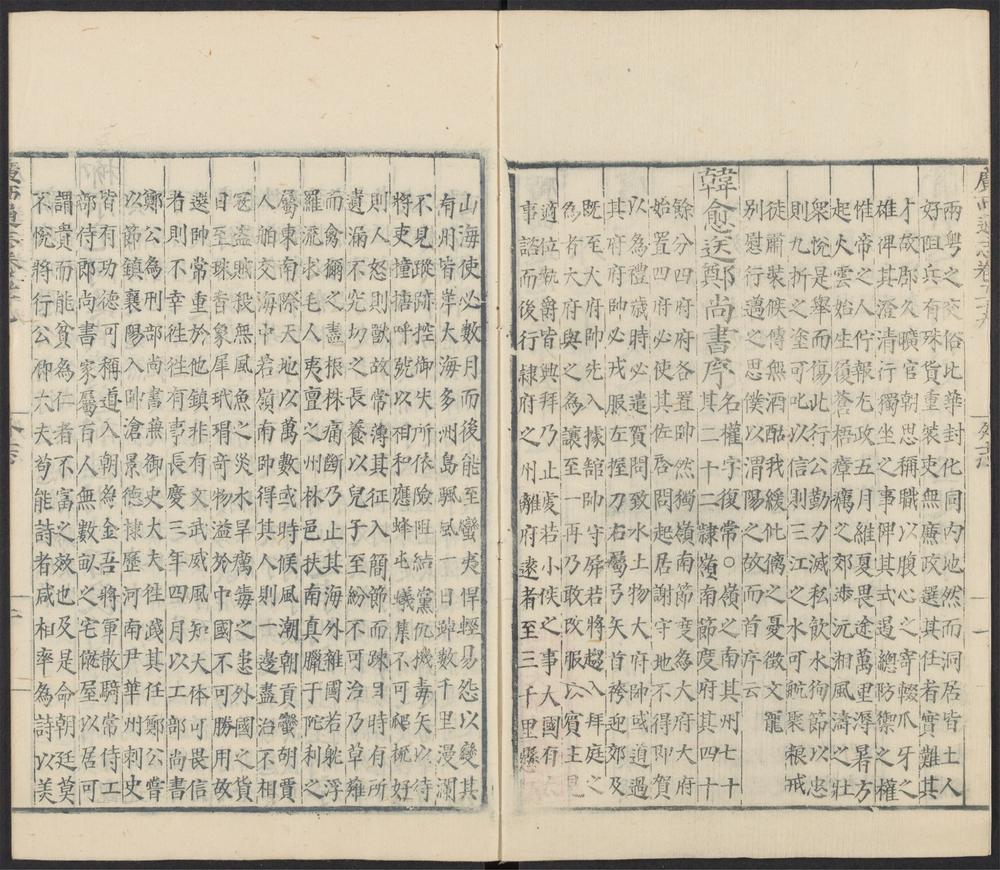 兩粤之交俗比華封化同内地然而洞居皆土人
好阻兵有珠貨重裝吏無廉政選其仕者實難其
才故郡久曠官朝思稱職以腹心之寄輟爪牙之
雄俾其澄清行獨坐之事俾其式遏總防禦之權
惟帝之人佇報尤政五月維夏畏途萬里溽暑方
起火雲始生復蒼梧瘴癘之郊涉沅湘風濤之壯
衆悅是舉而傷此行公勤力滅私飲水徇節以忠
則九折之塗可叱以信則三江之水可航聚糧戒
徒肅裝候傳無酒酤我緩仳儷之憂徵文寵
别慰行邁之思僕以渭陽之故而首序云
韓愈送鄭尚書序 名權字復常○嶺之南其州七十
其二十二隸嶺南節度府其四十
餘分四府府各置帥然獨嶺南節度為大府大府
始至四府必使其佐啓問起居謝守地不得即賀
以為禮歲時必遣賀問致水土物大府帥或道過
其府府帥必戎服左握刀右屬弓矢首袴迎郊及
既至大府帥先入據館帥守屏若將趨入拜庭之
為者大府與之為讓至一再乃敢改服以賓主見
適位執爵皆興拜乃止處若小侯之事大國有大
事諮而後行隸府之州離府遠者至三千里懸
廣西通志卷
山海使必數月而後能至蠻夷悍輕易怨以變其
南州皆岸大海多洲島颿風一日踔數千里漫瀾
不見蹤跡控御失所依險阻結黨仇機毒矢以待
將吏撞搪呼號以相和應蜂屯蟻集不可爬梳好
則人怒則獸故常薄其征入簡節而踈目時有所
遺漏不究切之長養以兒子至紛不可治乃草薙
而禽獮之盡根株痛斷乃止其海外雜國若躭浮
羅流求毛人夷亶之州林邑扶南真臘于陀利之
屬東南際天地以萬數或時候風潮朝貢蠻胡賈
人舶交海中若嶺南帥得其人則一邊盡治不相
冦盗賊殺無風魚之災水旱癘毒之患外國之貨
日至珠香象犀玳瑁竒物溢於中國不可勝用故
選帥常重於他鎮非有文武威風知大体可畏信
者則不幸徃徃有事長慶三年四月以工部尚書
鄭公為刑部尚書無御史大夫徃踐其任鄭公嘗
以節鎮襄陽入帥滄景德棣歷河南尹華州刺史
皆有功德可稱道入朝為金吾將軍散騎常侍工
部侍郎尚書家屬百人無數畝之宅僦屋以居可
謂貴而能貧為仁者不富之效也及是命朝廷莫
不悅將行公卿大夫苟能詩者咸相率為詩以美